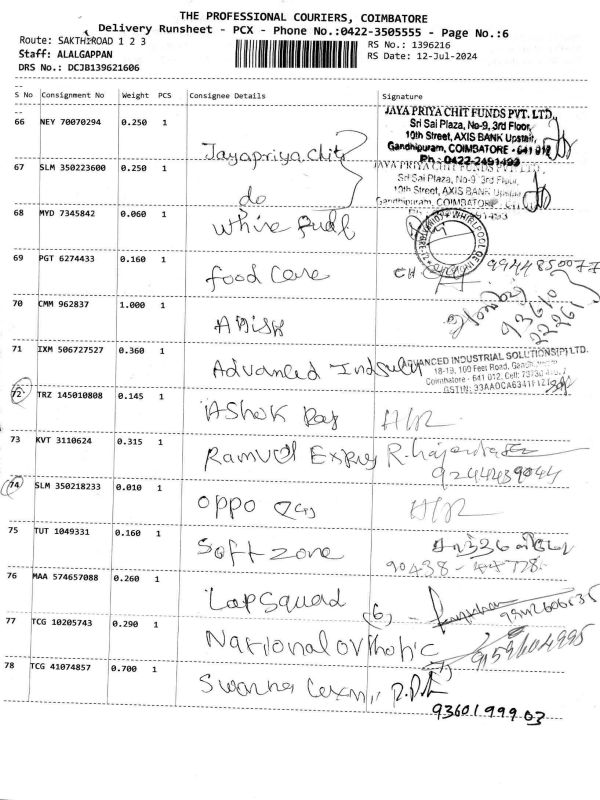 THE PROFESSIONAL COURIERS, COIMBATORE
Delivery Runsheet - PCX - Phone No.:0422-3505555 - Page No.:6
Route: SAKTHIROAD 1 2 3
RS No.: 1396216
Staff: ALALGAPPAN
RS Date: 12-Jul-2024
DRS No.: DCJB139621606
S No Consignment No Weight PCS Consignee Details Signature
66 NEY 70070294 0.250 1 Jayapriya chits
JAYA PRIYA CHIT FUNDS PVT. LTD.,
Sri Sai Plaza, No-9, 3rd Floor,
10th Street, AXIS BANK Upstair,
Gandhipuram, COIMBATORE - 641 012
Ph : 0422-2491493
67 SLM 350223600 0.250 1 do
JAYA PRIYA CHIT FUNDS PVT. LTD.,
Sri Sai Plaza, No-9 3rd Floor,
10th Street, AXIS BANK Upstair
Gandhipuram, COIMBATORE
68 MYD 7345842 0.060 1
69 PGT 6274433 0.160 1 food Care
9944850077
70 CMM 962837 1.000 1 Anish
93610
22261
71 IXM 506727527 0.360 1 Advanced
ADVANCED INDUSTRIAL SOLUTIONS(P) LTD.
18-19, 100 Feet Road,
Coimbatore - 641 012. Cell:
72 TRZ 145010808 0.145 1 AShok Raj
73 KVT 3110624 0.315 1
9244239044
74 SLM 350218233 0.010 1 oppo
75 TUT 1049331 0.160 1 Softzone
90438-44778
76 MAA 574657088 0.260 1 Lapsquad (6)
77 TCG 10205743 0.290 1 National orthotic
9159604995
78 TCG 41074857 0.700 1 Swarna
9360199903